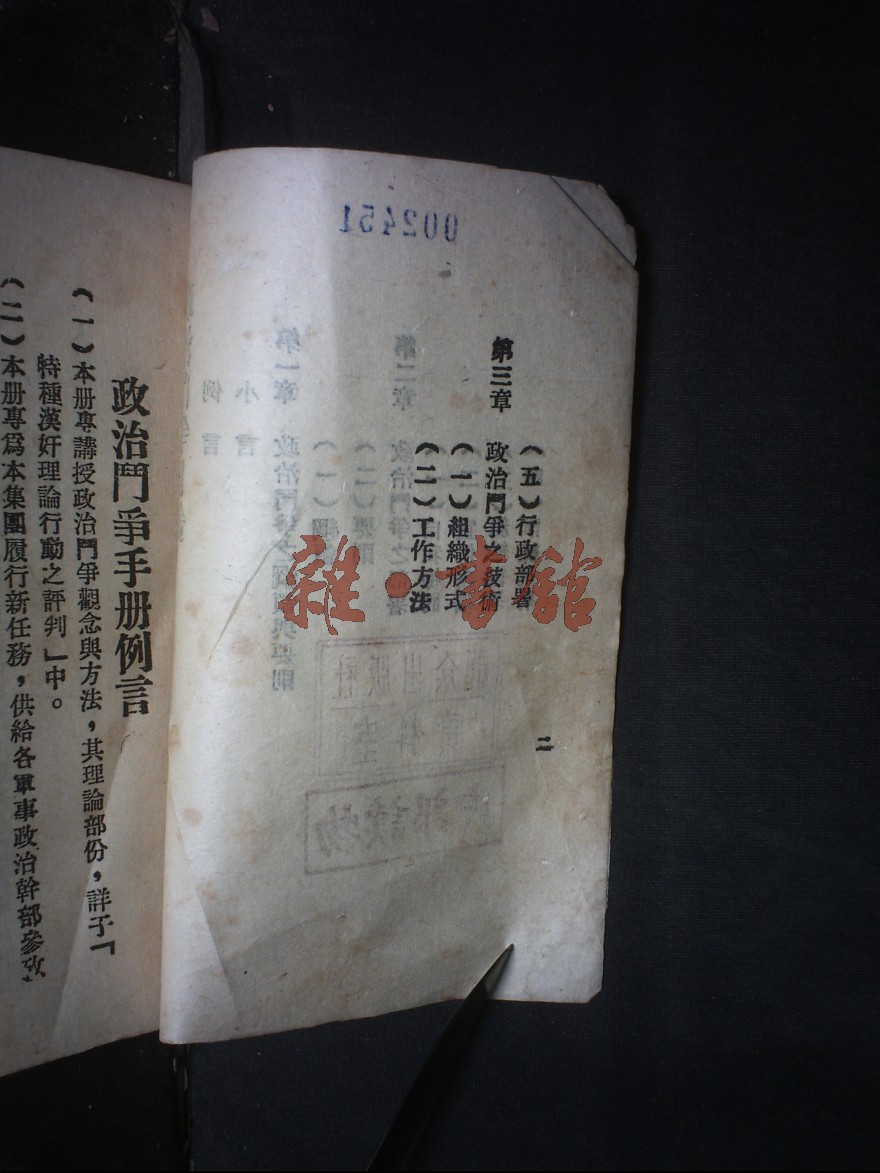 002451
（五）行政部署
第三章　政治鬥爭之技術
（一）組織形式
（二）工作方法
二
第二章　政治鬥爭之部署
（二）要則
（一）綱領
第一章　政治鬥爭之綱領與要則
小言
例言
出版社
雜·書館
政治鬥爭手册例言
（一）本册專講授政治鬥爭觀念與方法，其理論部份，詳于「
特種漢奸理論行動之評判」中。
（二）本册專爲本集團履行新任務，供給各軍事政治幹部參攷